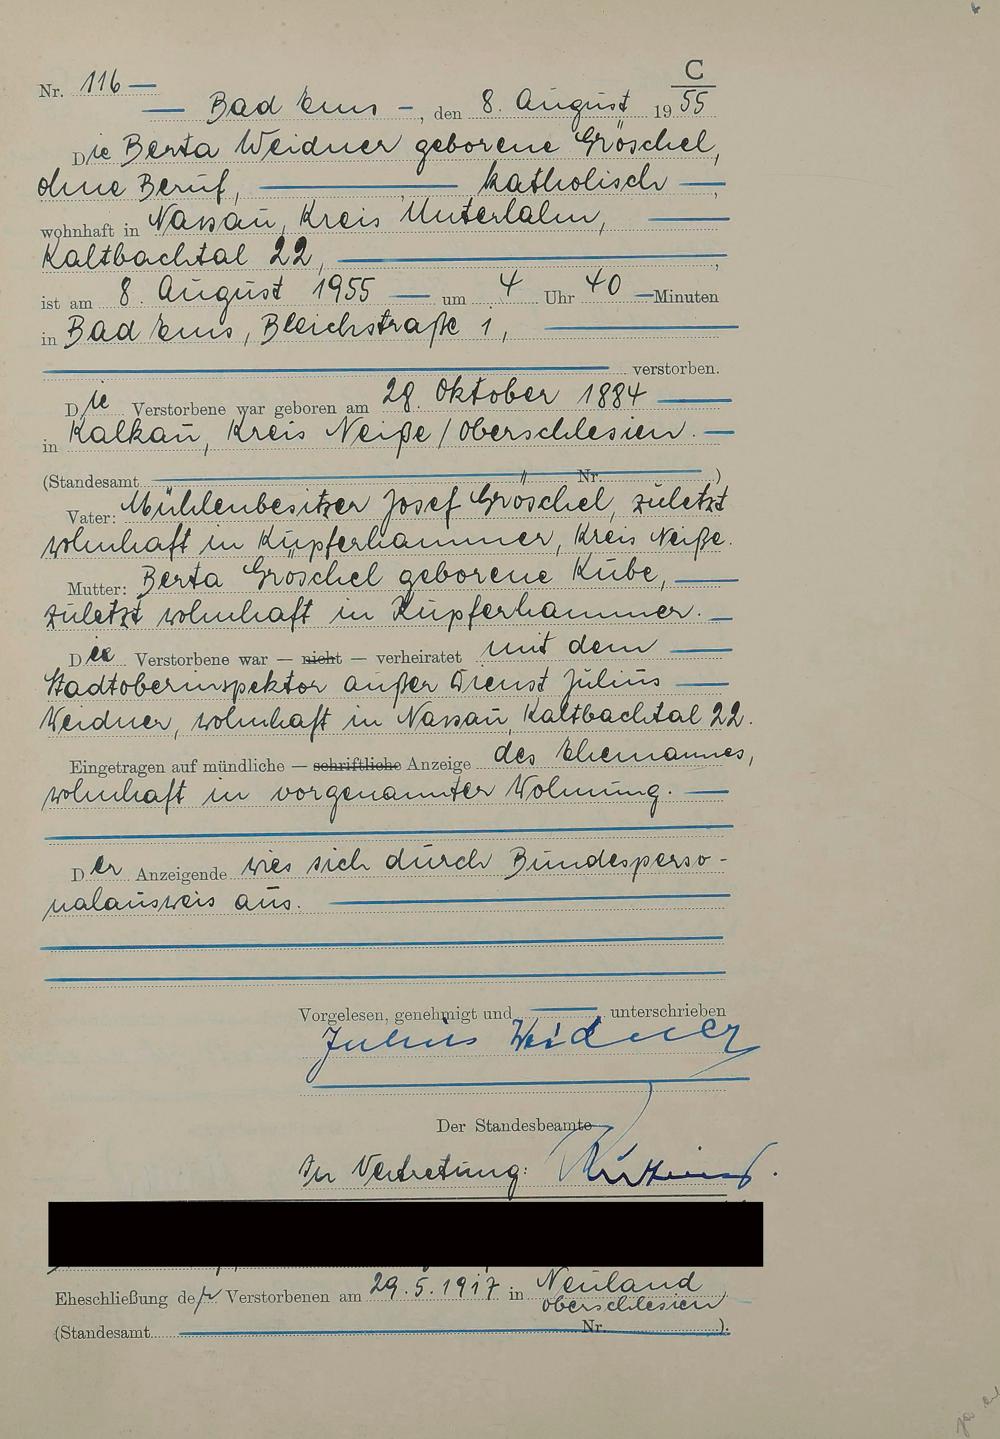 C
Nr. 116
Bad Ems, den 8. August 1955
Die Berta Weidner geborene Gröschel,
ohne Beruf, katholisch,
wohnhaft in Nassau, Kreis Unterlahn,
Kaltbachtal 22,
ist am 8. August 1955 um 4 Uhr 40 Minuten
in Bad Ems, Bleichstraße 1,
verstorben.
Die Verstorbene war geboren am 28. Oktober 1884
in Kalkau, Kreis Neiße/Oberschlesien.
(Standesamt Nr. )
Vater: Mühlenbesitzer Josef Gröschel, zuletzt
wohnhaft in Kupferhammer, Kreis Neiße.
Mutter: Berta Gröschel geborene Kube,
zuletzt wohnhaft in Kupferhammer.
Die Verstorbene war — nicht — verheiratet mit dem
Stadtoberinspektor außer Dienst Julius
Weidner, wohnhaft in Nassau, Kaltbachtal 22.
Eingetragen auf mündliche — schriftliche Anzeige des Ehemannes,
wohnhaft in vorgenannter Wohnung.
Der Anzeigende wies sich durch Bundesperso-
nalausweis aus.
Vorgelesen, genehmigt und unterschrieben
Julius Weidner
Der Standesbeamte
In Vertretung:
Eheschließung der Verstorbenen am 29.5.1917 in Neuland
Oberschlesien
(Standesamt Nr. ).